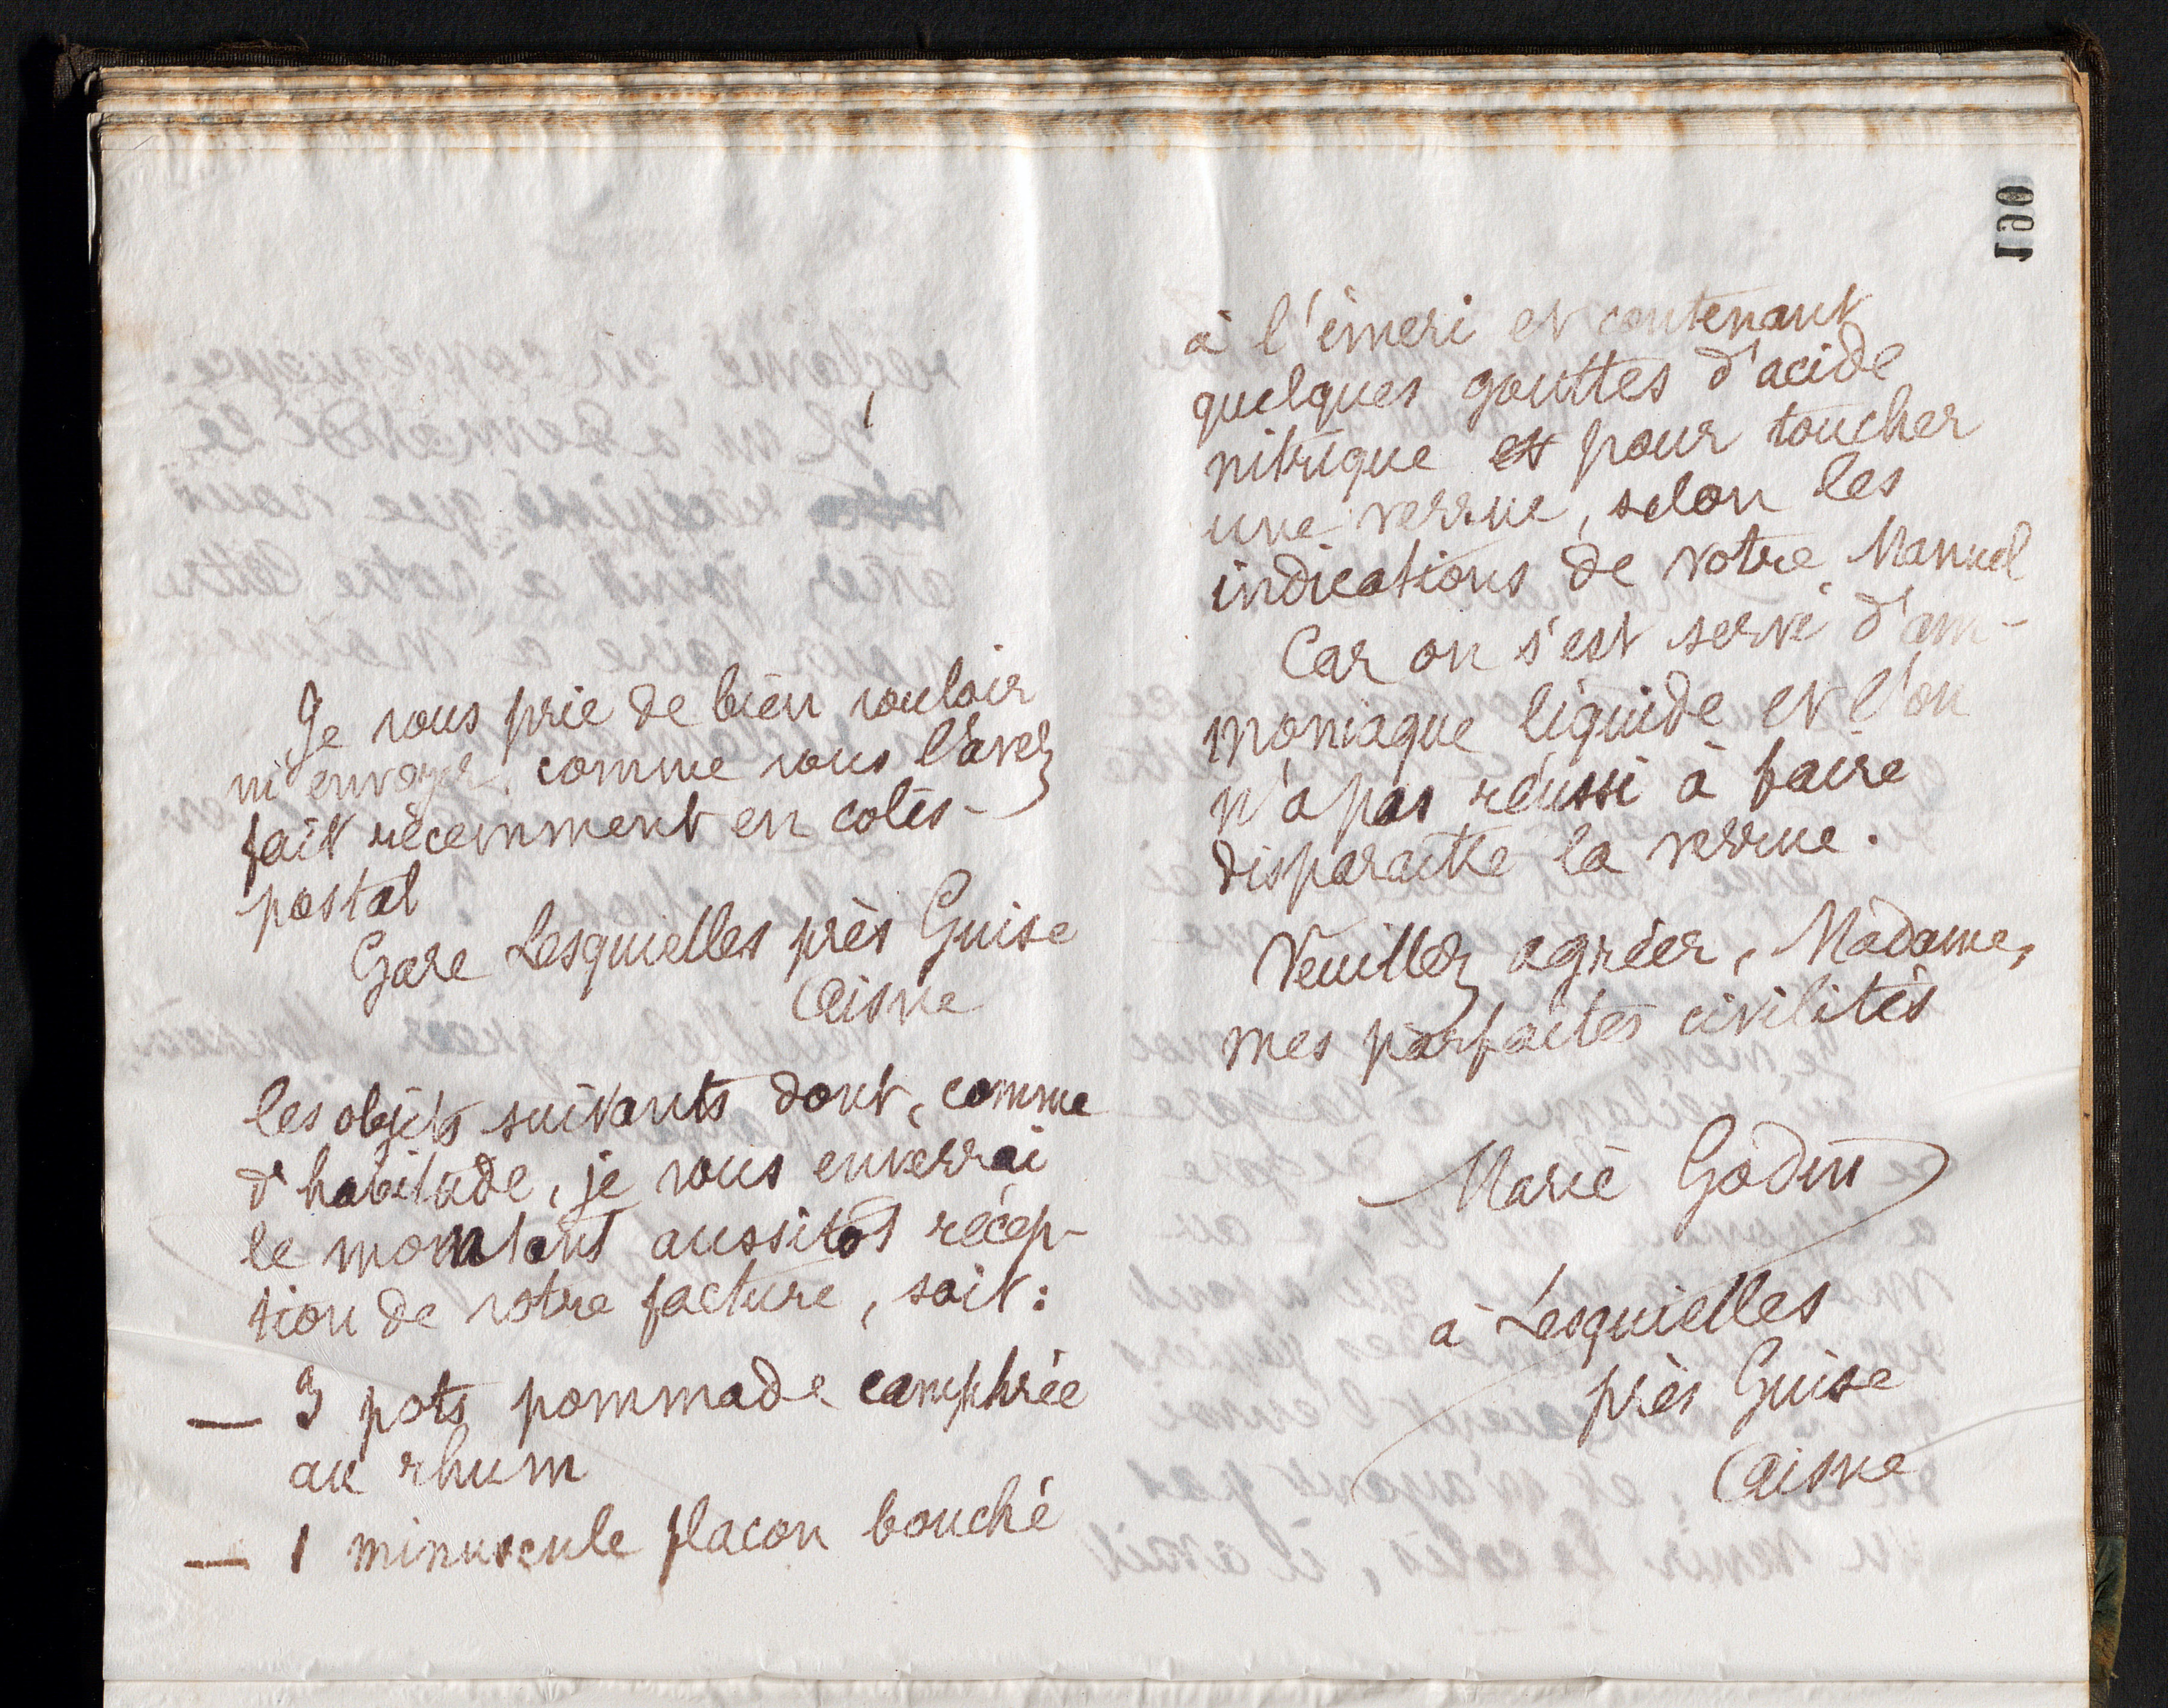 Je vous prie de bien vouloir
m'envoyer, comme vous l'avez
fait récemment en colis-
postal
Gare Lesquielles près Guise
Aisne
les objets suivants dont, comme
d'habitude, je vous enverrai
le montant aussitôt récep-
tion de votre facture, soit :
— 3 pots pommade camphrée
au rhum
— 1 minuscule flacon bouché
190
à l'émeri et contenant
quelques gouttes d'acide
nitrique et pour toucher
une verrue, selon les
indications de votre Manuel
Car on s'est servi d'am-
moniaque liquide et l'on
n'a pas réussi à faire
disparaître la verrue.
Veuillez agréer, Madame,
mes parfaites civilités
Marie Godin
à Lesquielles
près Guise
Aisne